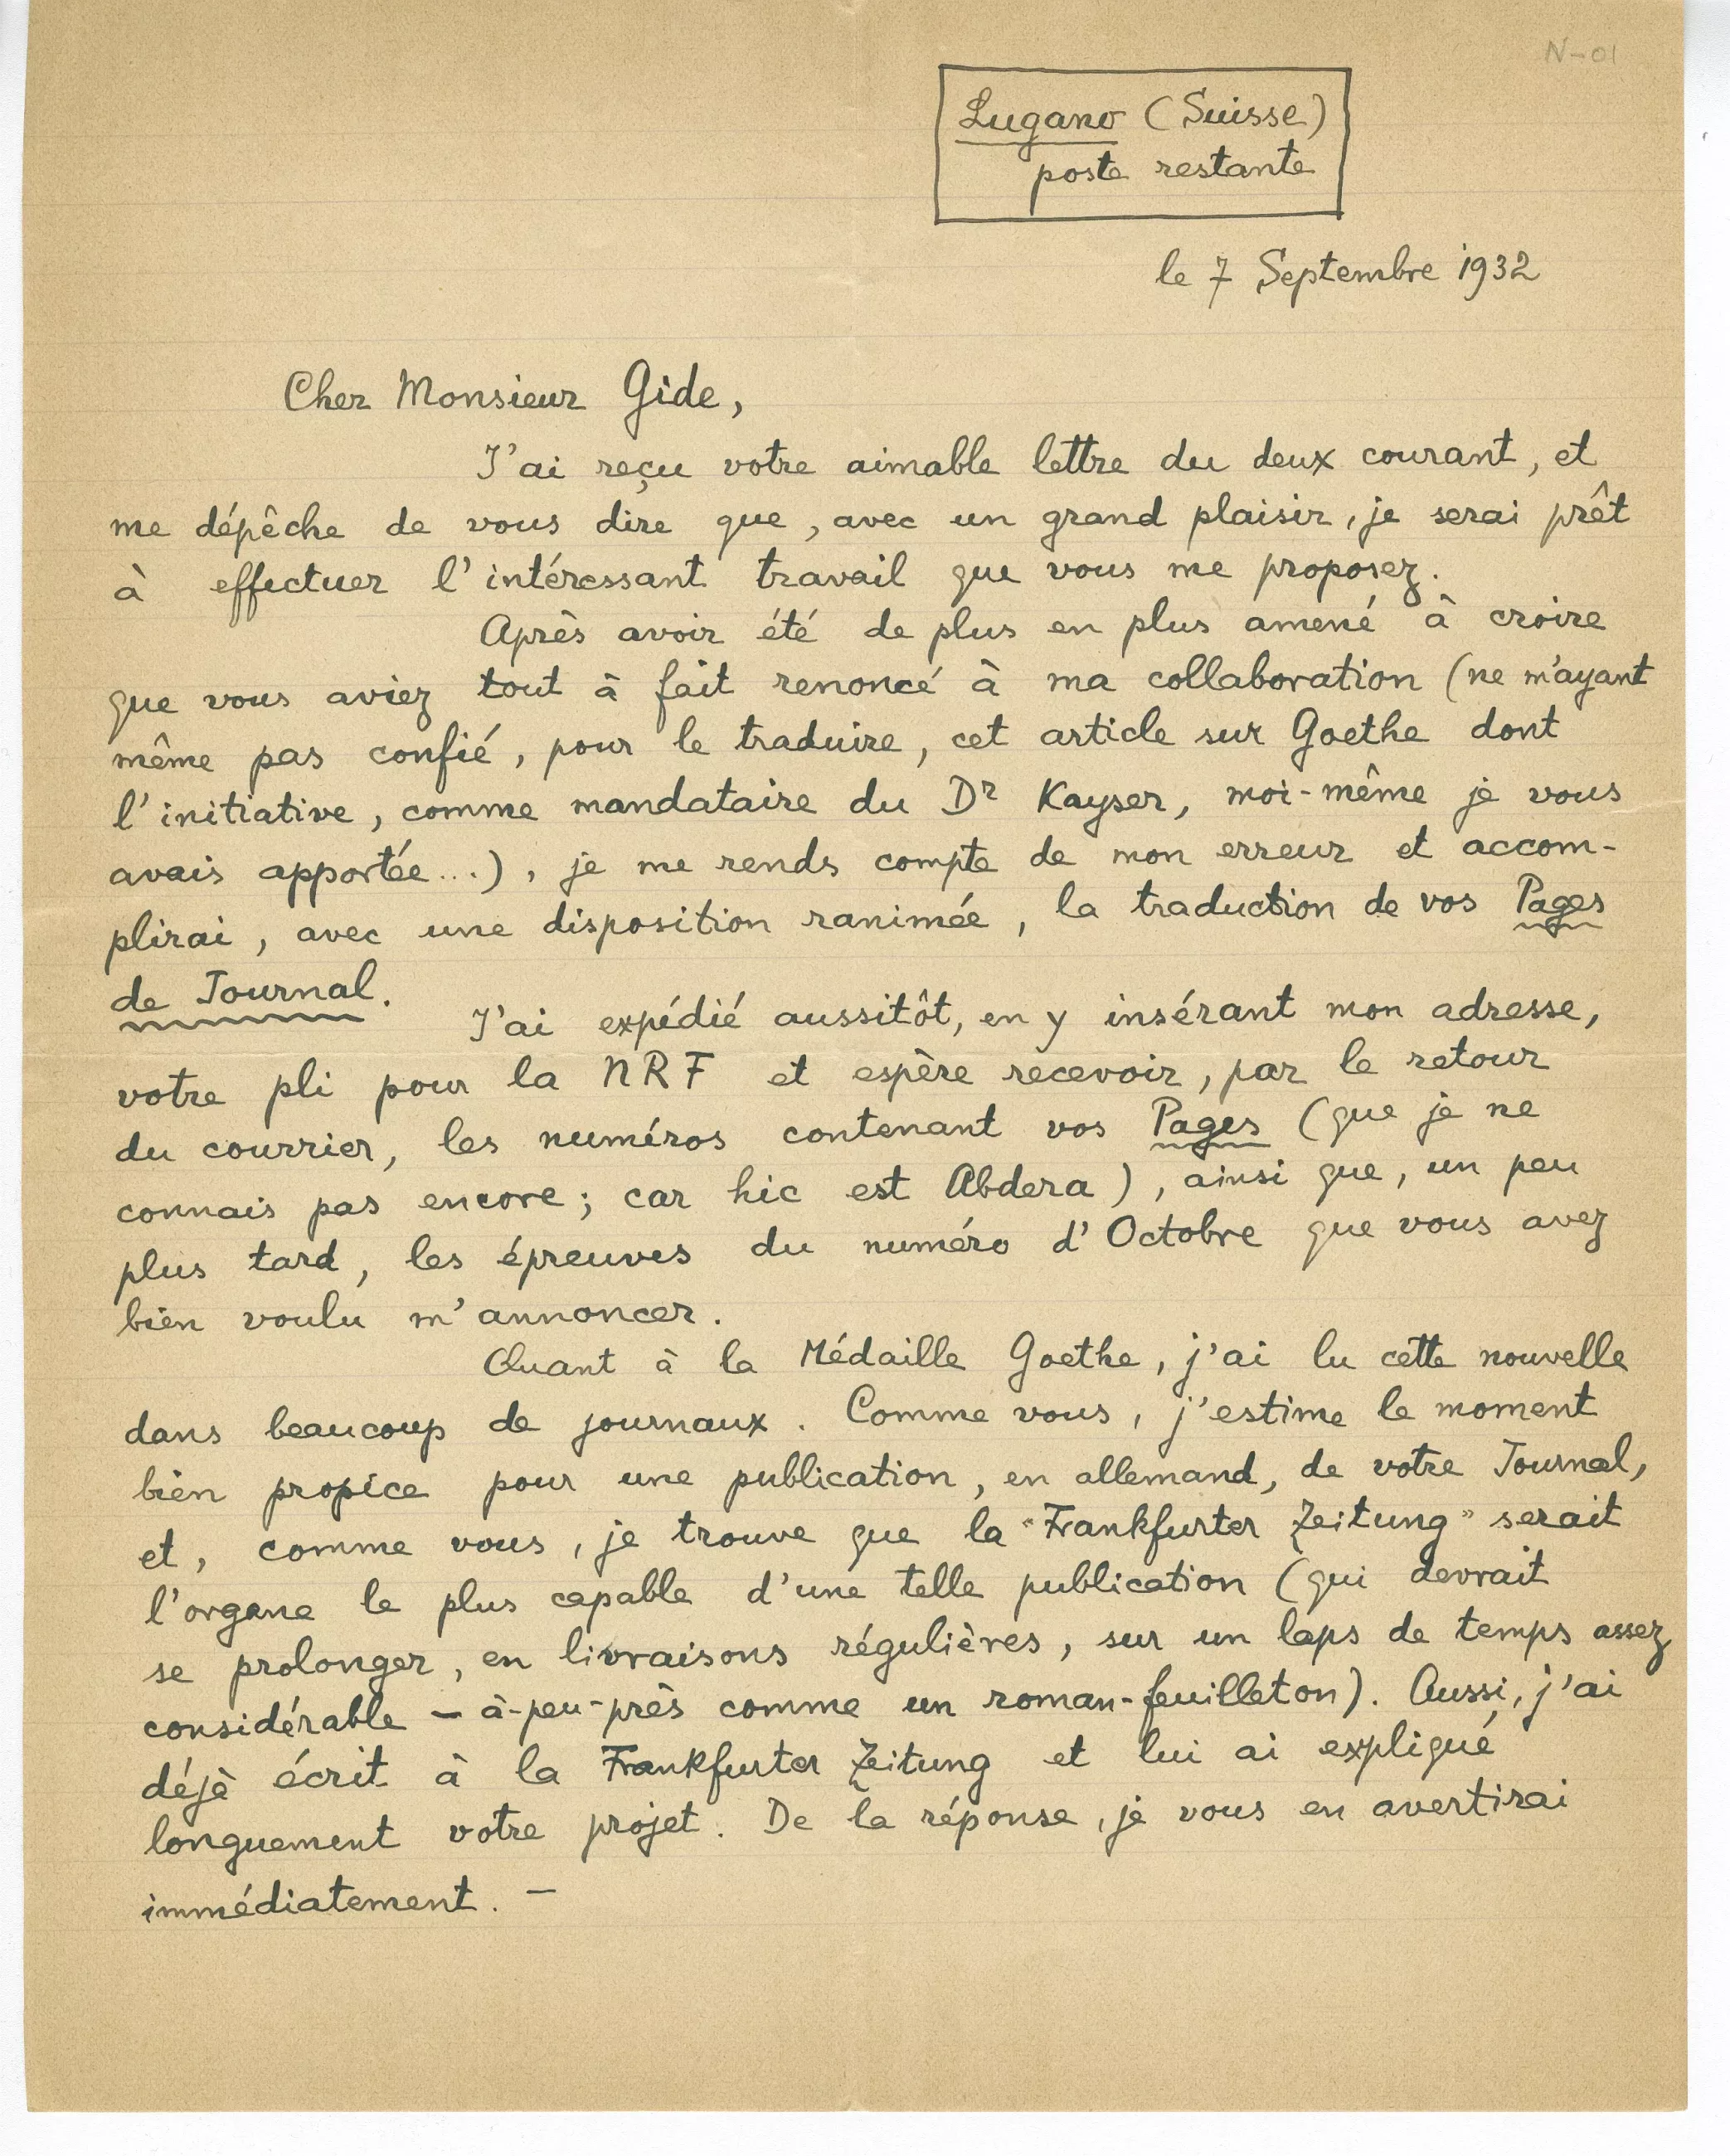 N-01
Lugano (Suisse)
poste restante
le 7 Septembre 1932
Cher Monsieur Gide,
J'ai reçu votre aimable lettre du deux courant, et
me dépêche de vous dire que, avec un grand plaisir, je serai prêt
à effectuer l'intéressant travail que vous me proposez.
Après avoir été de plus en plus amené à croire
que vous aviez tout à fait renoncé à ma collaboration (ne m'ayant
même pas confié, pour le traduire, cet article sur Goethe dont
l'initiative, comme mandataire du Dr Kayser, moi-même je vous
avais apportée...), je me rends compte de mon erreur et accom-
plirai, avec une disposition ranimée, la traduction de vos Pages
de Journal.
J'ai expédié aussitôt, en y insérant mon adresse,
votre pli pour la NRF et espère recevoir, par le retour
du courrier, les numéros contenant vos Pages (que je ne
connais pas encore; car hic est Abdera), ainsi que, un peu
plus tard, les épreuves du numéro d'Octobre que vous avez
bien voulu m'annoncer.
Quant à la Médaille Goethe, j'ai lu cette nouvelle
dans beaucoup de journaux. Comme vous, j'estime le moment
bien propice pour une publication, en allemand, de votre Journal,
et, comme vous, je trouve que la "Frankfurter Zeitung" serait
l'organe le plus capable d'une telle publication (qui devrait
se prolonger, en livraisons régulières, sur un laps de temps assez
considérable – à-peu-près comme un roman-feuilleton). Aussi, j'ai
déjà écrit à la Frankfurter Zeitung et lui ai expliqué
longuement votre projet. De la réponse, je vous en avertirai
immédiatement. –